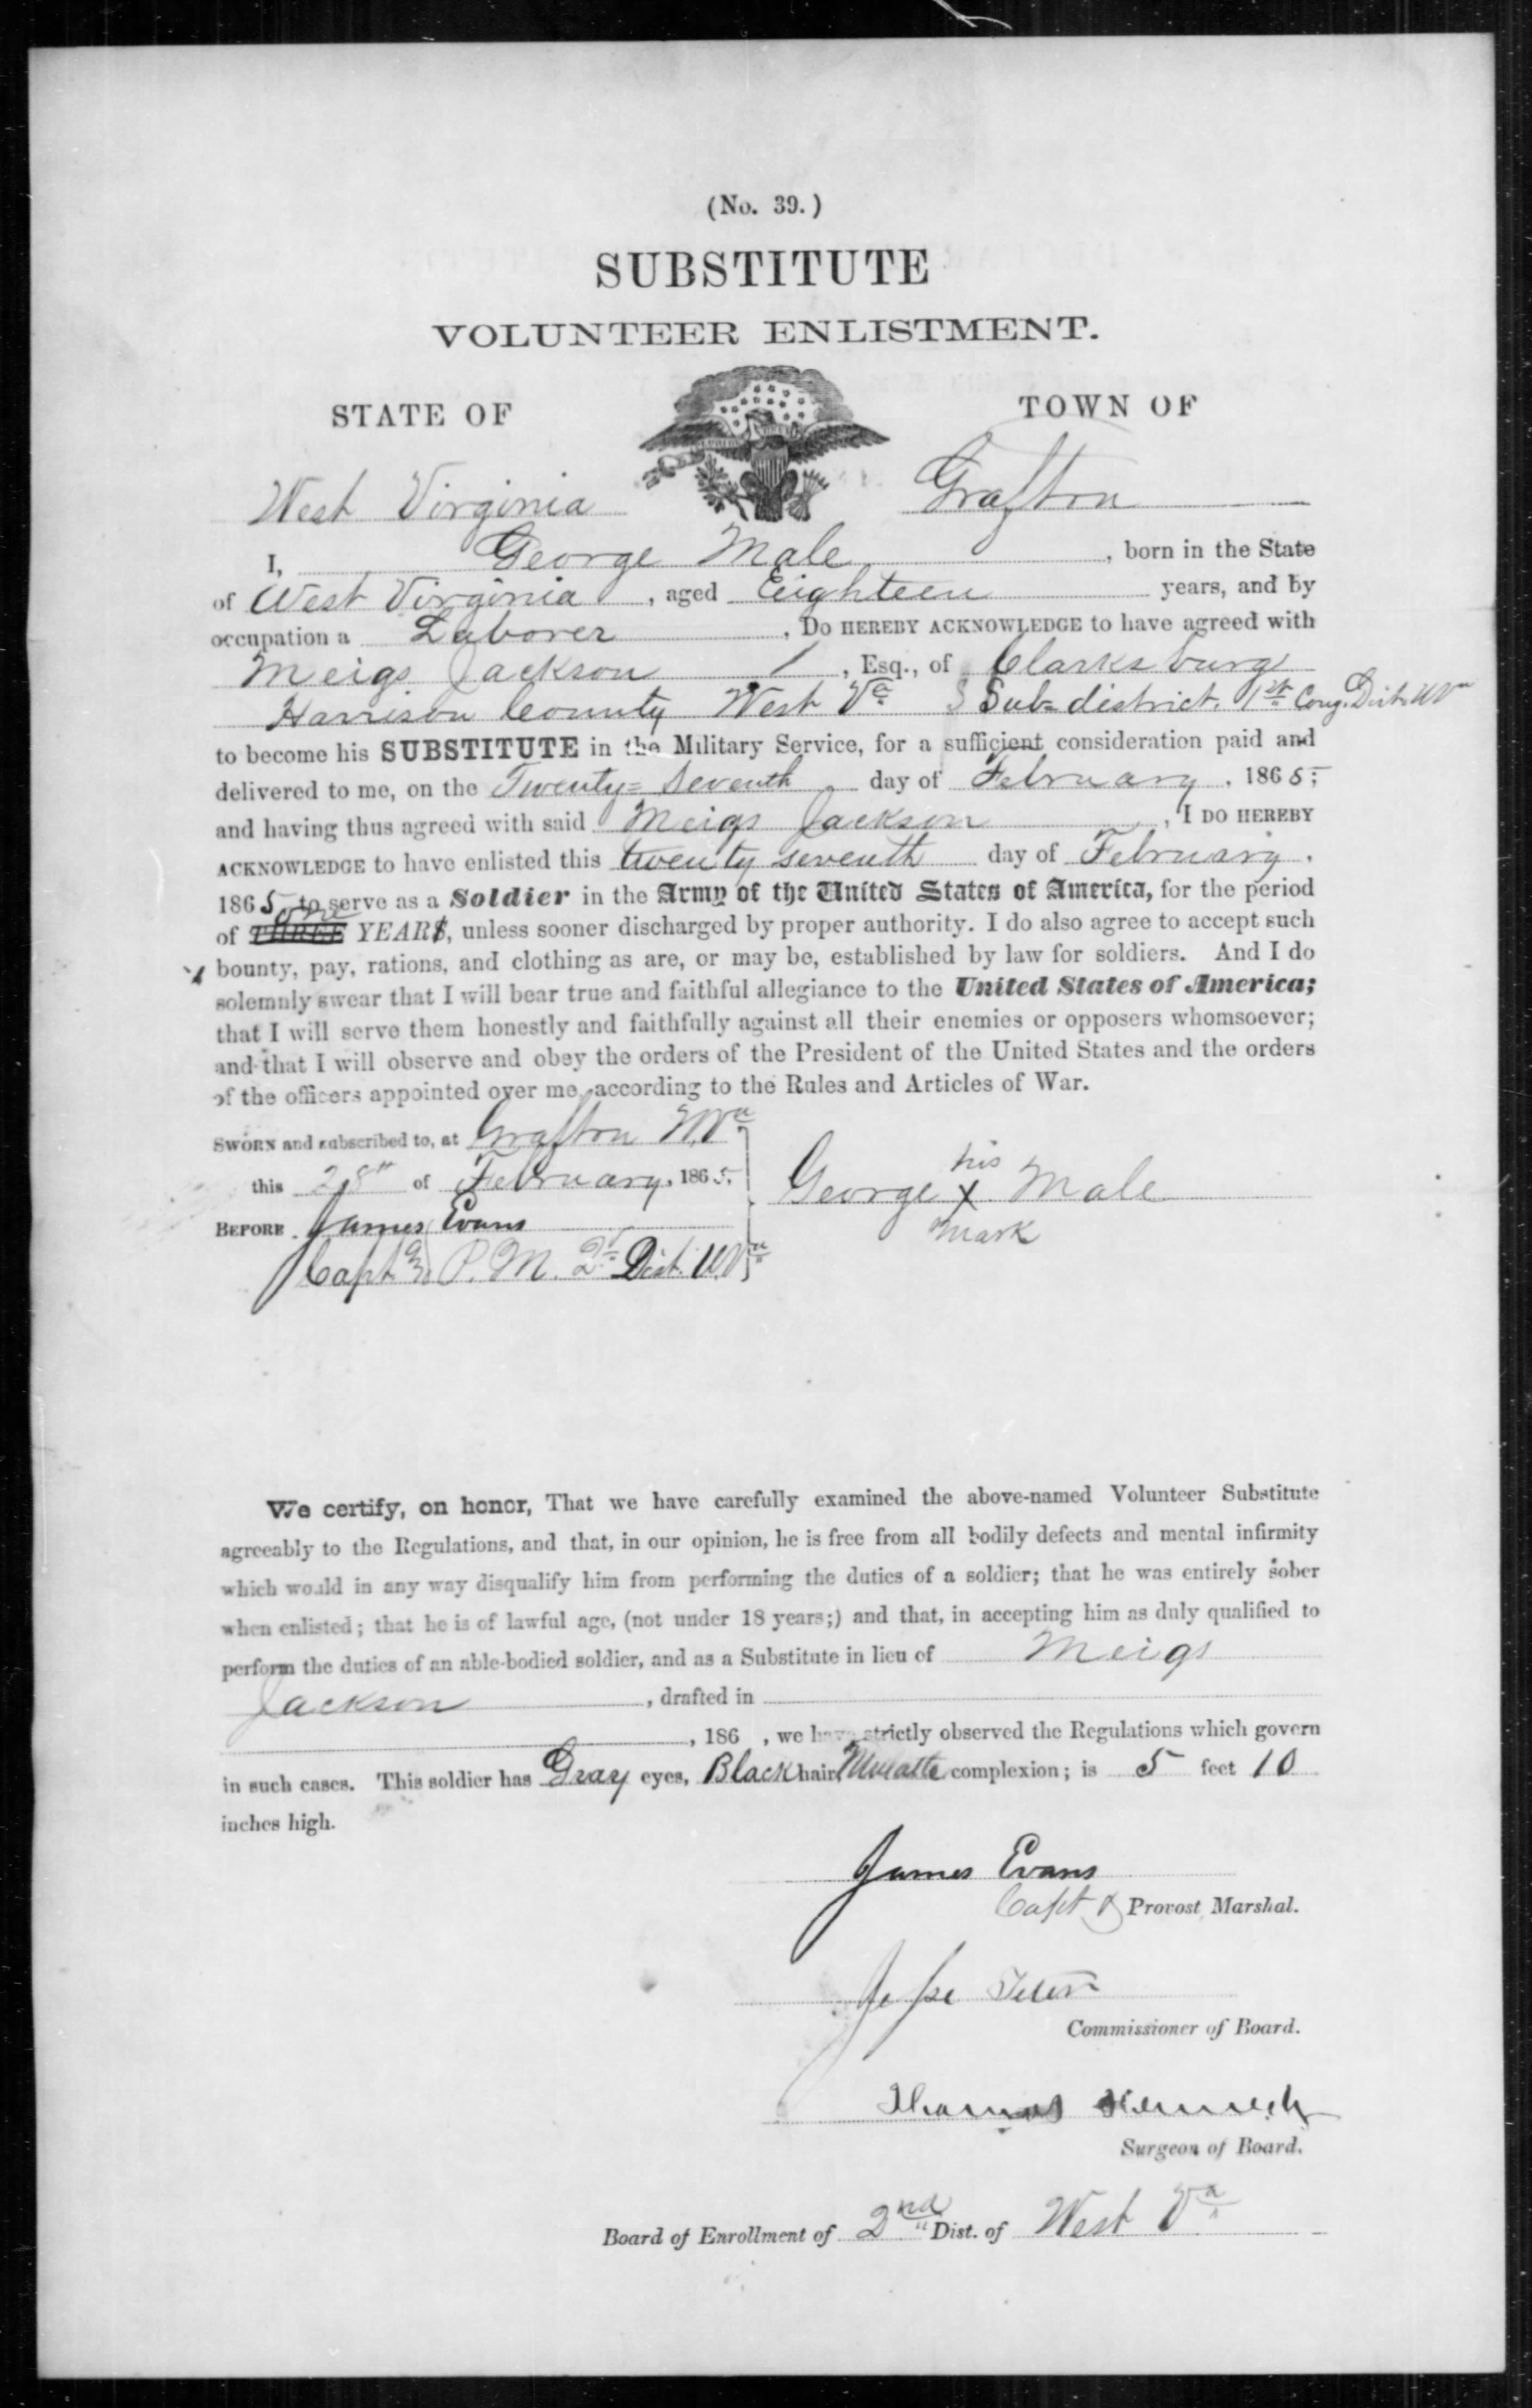 (No. 39.)
SUBSTITUTE
VOLUNTEER ENLISTMENT.
STATE OF TOWN OF
West Virginia Grafton
I, George Male, born in the State
of West Virginia, aged Eighteen years, and by
occupation a Laborer, DO HEREBY ACKNOWLEDGE to have agreed with
Meigs Jackson, Esq., of Clarksburg
Harrison County West Va Sub-district. 1st Cong. Dist. W Va
to become his SUBSTITUTE in the Military Service, for a sufficient consideration paid and
delivered to me, on the Twenty-Seventh day of February, 1865;
and having thus agreed with said Meigs Jackson, I DO HEREBY
ACKNOWLEDGE to have enlisted this twenty seventh day of February,
1865, to serve as a Soldier in the Army of the United States of America, for the period
of THREE one YEARS, unless sooner discharged by proper authority. I do also agree to accept such
bounty, pay, rations, and clothing as are, or may be, established by law for soldiers. And I do
solemnly swear that I will bear true and faithful allegiance to the United States of America;
that I will serve them honestly and faithfully against all their enemies or opposers whomsoever;
and that I will observe and obey the orders of the President of the United States and the orders
of the officers appointed over me, according to the Rules and Articles of War.
SWORN and subscribed to, at Grafton W.Va
this 28th of February, 1865.
BEFORE James Evans
Capt & P. M. 2d Dist. W.Va
his
George X Male
mark
We certify, on honor, That we have carefully examined the above-named Volunteer Substitute
agreeably to the Regulations, and that, in our opinion, he is free from all bodily defects and mental infirmity
which would in any way disqualify him from performing the duties of a soldier; that he was entirely sober
when enlisted; that he is of lawful age, (not under 18 years;) and that, in accepting him as duly qualified to
perform the duties of an able-bodied soldier, and as a Substitute in lieu of Meigs
Jackson, drafted in
, 186 , we have strictly observed the Regulations which govern
in such cases. This soldier has Gray eyes, Black hair, Mulatto complexion; is 5 feet 10
inches high.
James Evans
Capt & Provost Marshal.
Jesse Teter
Commissioner of Board.
Thomas Kennedy
Surgeon of Board.
Board of Enrollment of 2nd Dist. of West Va